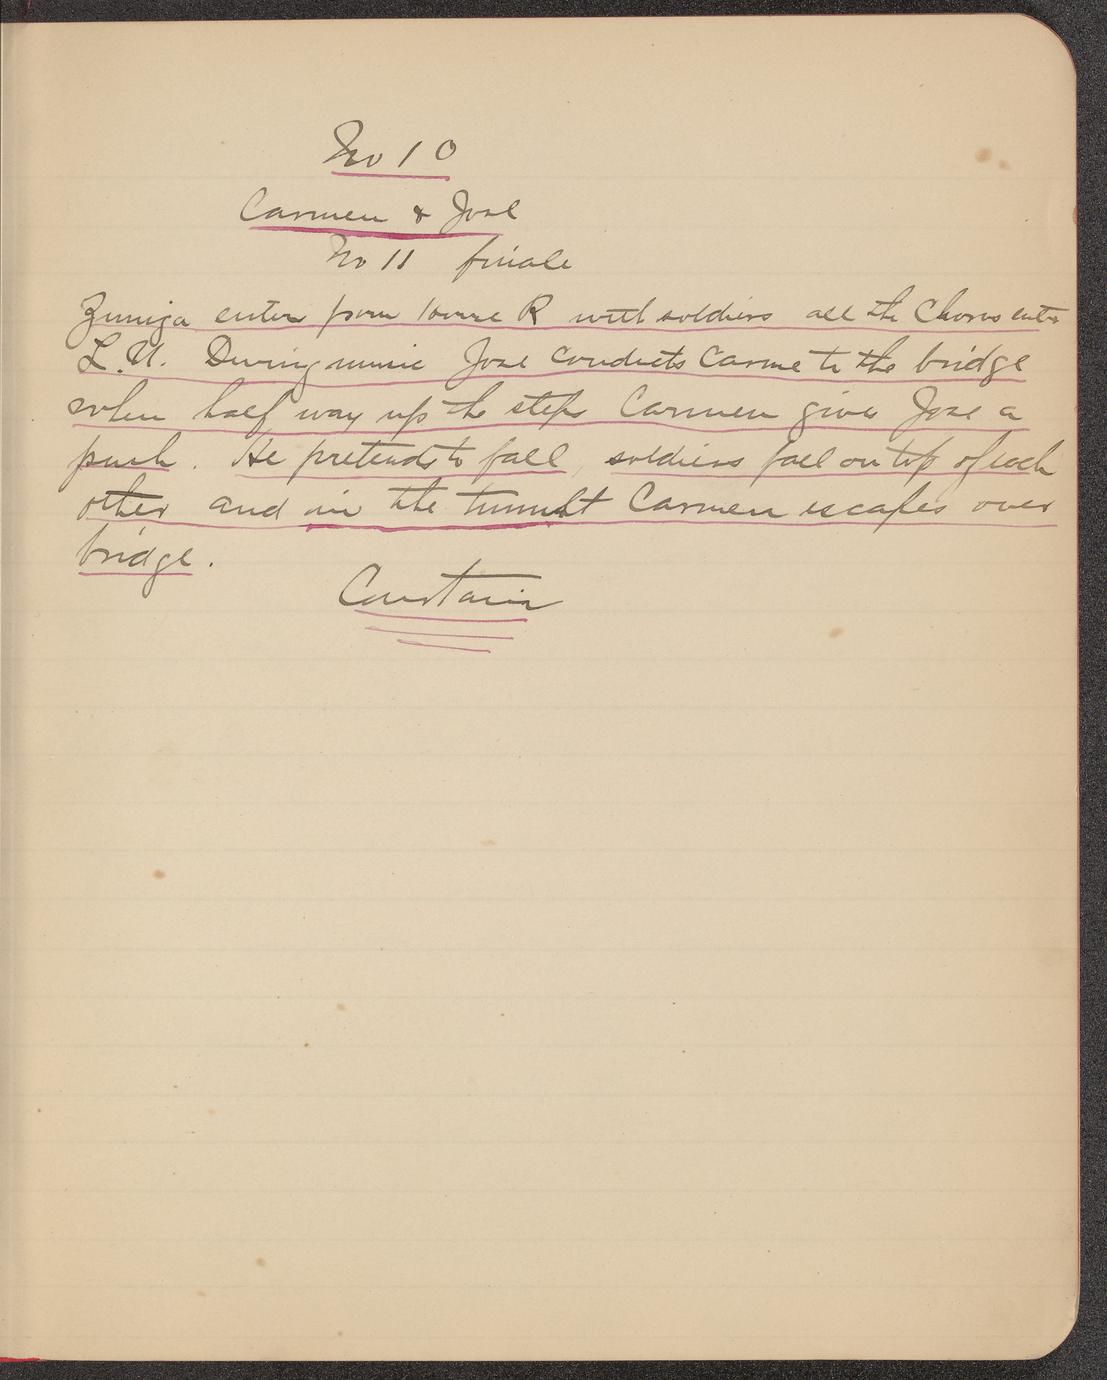 No 10
Carmen & José
No 11 finale
Zuniga enter from house R with soldiers all the Chorus enter
L.U. During music Jose conducts Carme to the bridge
when half way up the steps Carmen gives Jose a
push. He pretends to fall, soldiers fall on top of each
other and in the tumult Carmen escapes over
bridge.
Curtain